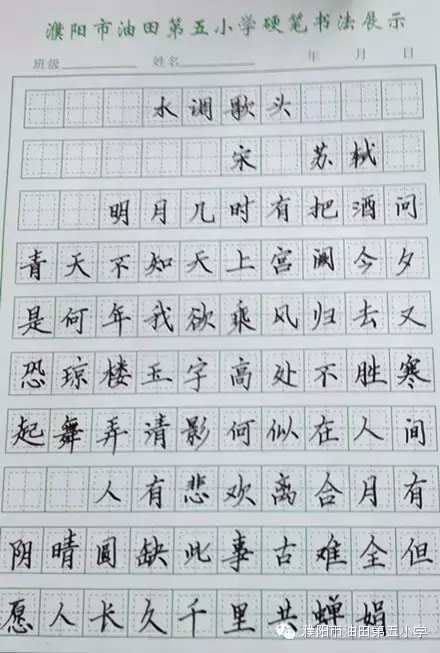 濮阳市油田第五小学硬笔书法展示
班级 姓名 年 月 日
水调歌头
宋 苏轼
明月几时有把酒问
青天不知天上宫阙今夕
是何年我欲乘风归去又
恐琼楼玉宇高处不胜寒
起舞弄清影何似在人间
人有悲欢离合月有
阴晴圆缺此事古难全但
愿人长久千里共蝉娟
濮阳市油田第五小学